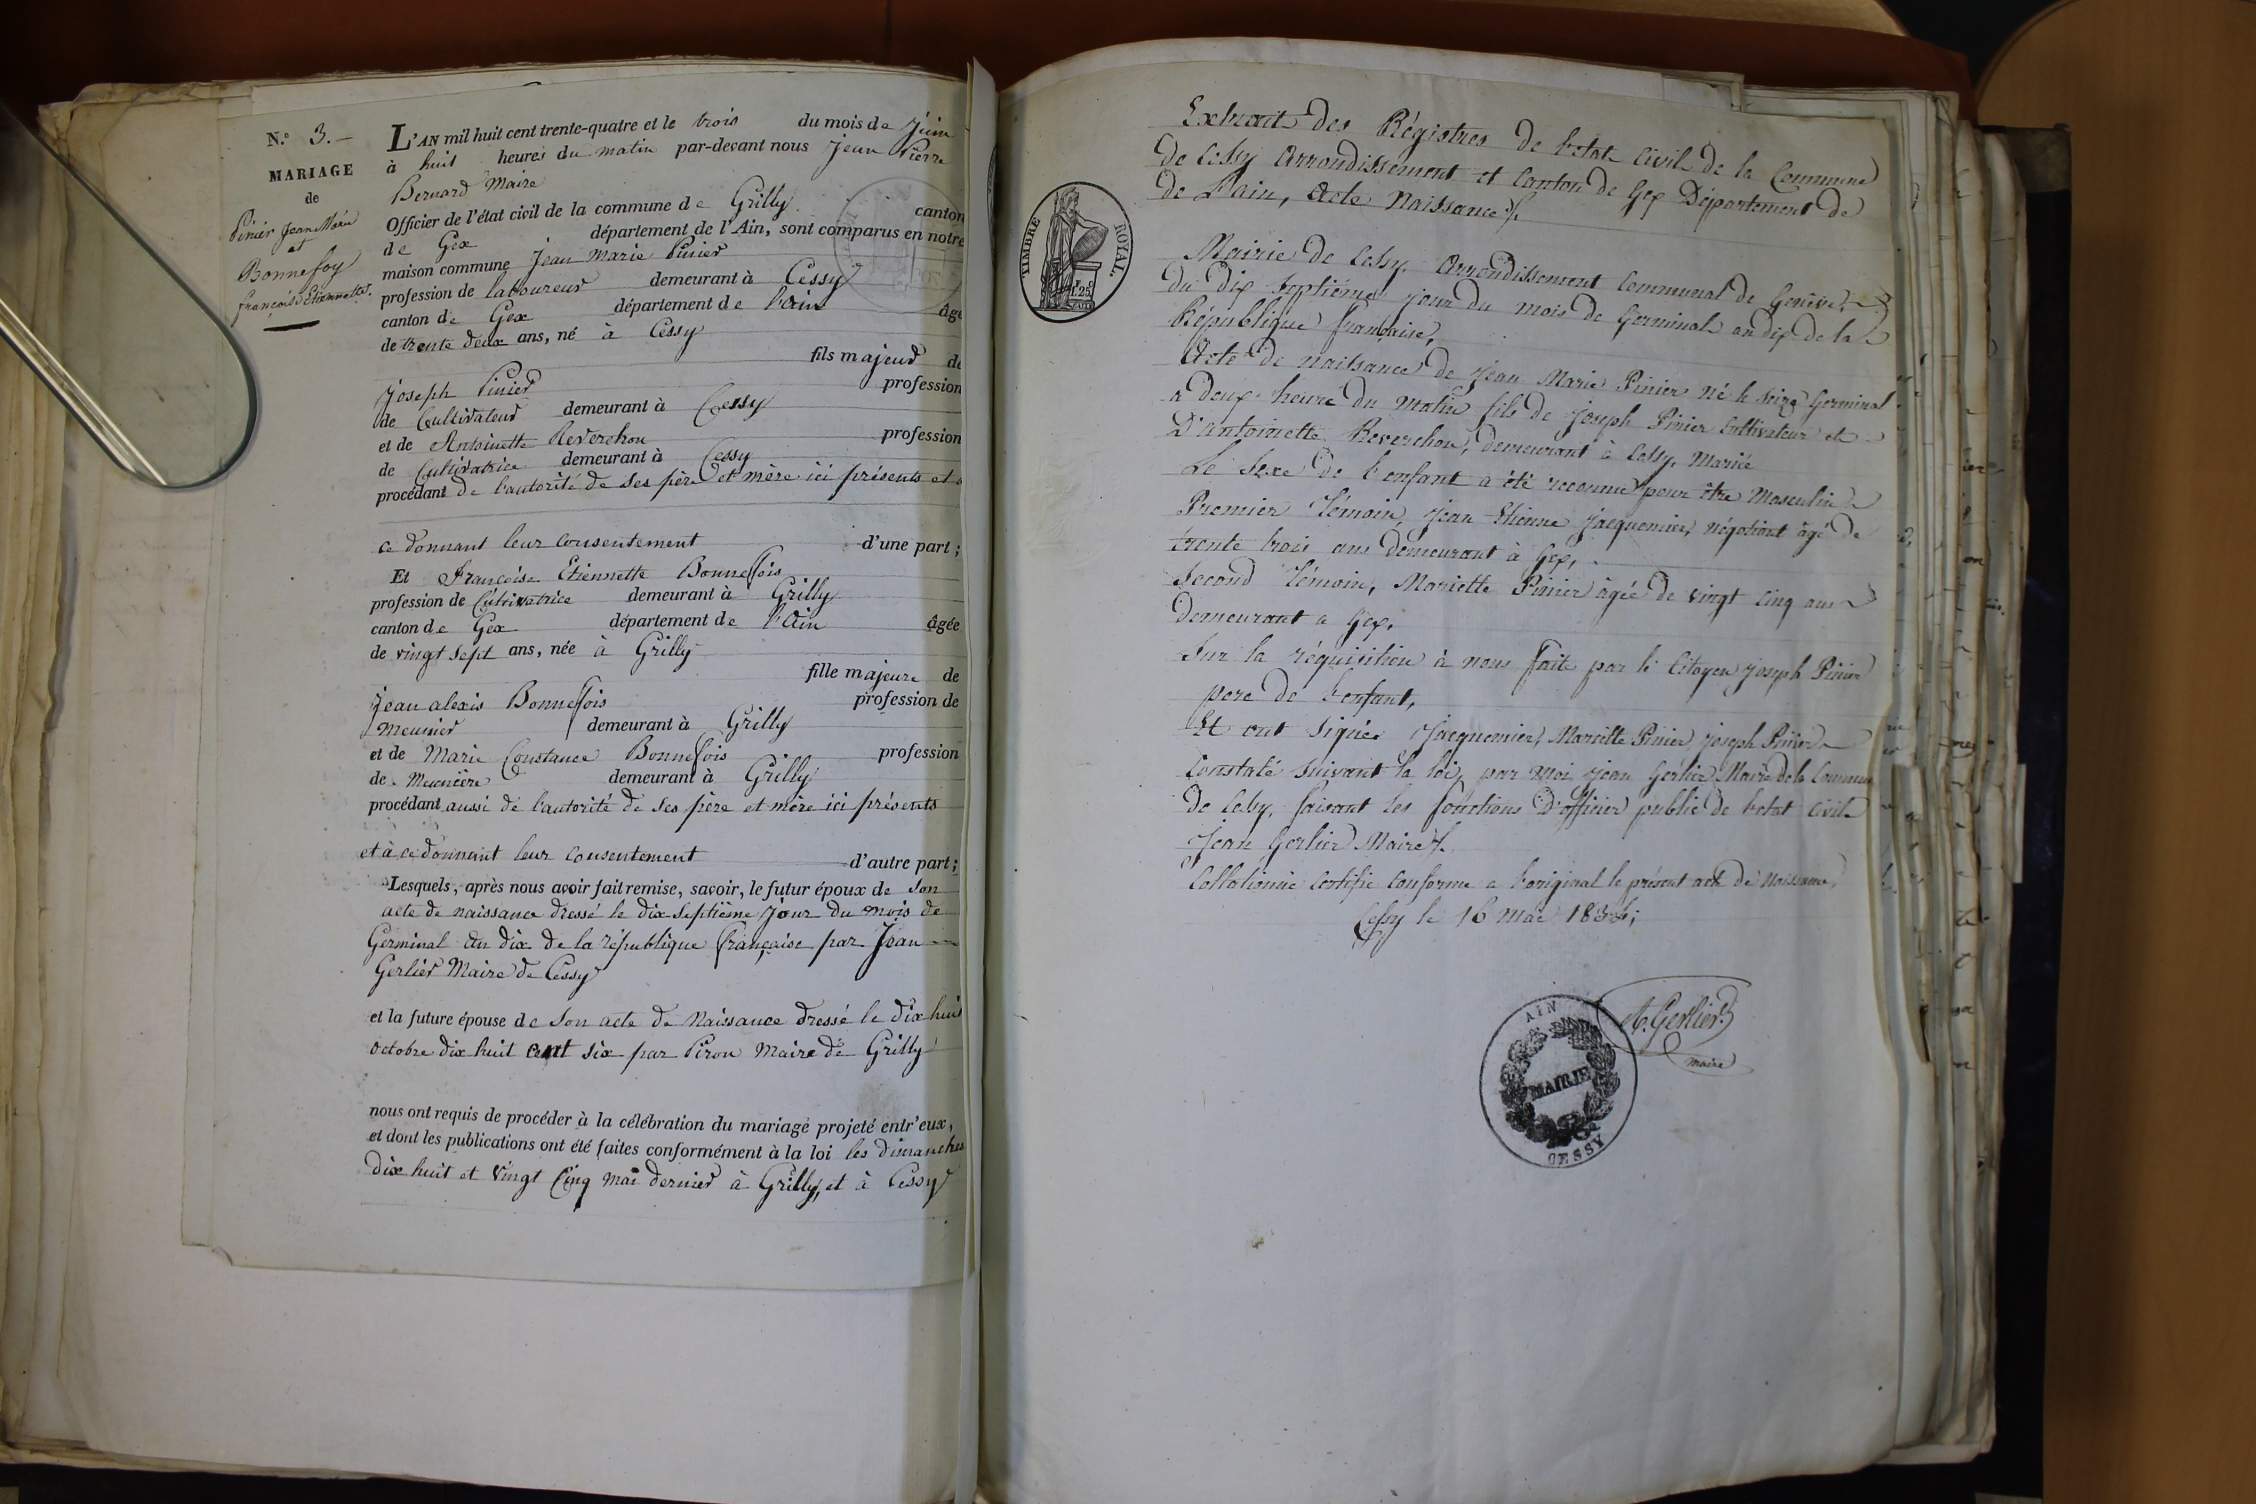 N.º 3.
MARIAGE
de
Pinier Jean Marie
et
Bonnefoy
françoise Etiennette.
L'AN mil huit cent trente-quatre et le trois du mois de Juin
à huit heures du matin par-devant nous Jean Pierre
Bernard Maire
Officier de l'état civil de la commune de Grilly canton
de Gex département de l'Ain, sont comparus en notre
maison commune Jean Marie Pinier
profession de laboureur demeurant à Cessy
canton de Gex département de l'Ain âgé
de trente deux ans, né à Cessy
fils majeur de
Joseph Pinier profession
de Cultivateur demeurant à Cessy
et de Antoinette Reverchon profession
de Cultivatrice demeurant à Cessy
procédant de l'autorité de ses père et mère ici présents et à
ce donnant leur consentement d'une part;
Et Françoise Etiennette Bonnefois
profession de Cultivatrice demeurant à Grilly
canton de Gex département de l'Ain âgée
de vingt sept ans, née à Grilly
fille majeure de
Jean alexis Bonnefois profession de
Meunier demeurant à Grilly
et de Marie Constance Bonnefois profession
de Meunière demeurant à Grilly
procédant aussi de l'autorité de ses père et mère ici présents
et à ce donnant leur consentement d'autre part;
Lesquels, après nous avoir fait remise, savoir, le futur époux de Son
acte de naissance dressé le dix septième jour du mois de
Germinal an dix de la république française par Jean
Gerlier Maire de Cessy
et la future épouse de Son acte de Naissance dressé le dix huit
octobre dix huit cent six par Piron Maire de Grilly
nous ont requis de procéder à la célébration du mariage projeté entr'eux,
et dont les publications ont été faites conformément à la loi les dimanches
dix huit et vingt cinq mai dernier à Grilly, et à Cessy
TIMBRE ROYAL.
Extrait des Régistres de l'etat Civil de la Commune
de Cessy Arrondissement et Canton de Gex Département de
De L'ain, Acte Naissance
Mairie de Cessy. Arrondissement Communal de Genève,
du dix septième jour du mois de Germinal an dix de la
République française,
Acte de naissance de Jean Marie Pinier né le seize Germinal
a deux heure du matin fils de Joseph Pinier Cultivateur et
D'antoinette Reverchon, demeurant à Cessy, Marié
Le Sexe de l'enfant a été reconnu pour être Masculin
Premier Témoin, Jean Etienne Jacquemier, négotiant âgé de
trente trois ans demeurant à Gex,
Second Témoin, Mariette Pinier âgée de vingt cinq ans
Demeurant a Gex,
Sur la réquisition à nous fait par le Citoyen Joseph Pinier
pere de l'enfant,
Et ont signés Jacquemier, Mariette Pinier, Joseph Pinier
Constaté suivant la loi, par moi Jean Gerlier Maire de la Commune
De Cessy, faisant les fonctions D'officier public de l'etat Civil
Jean Gerlier Maire
Collationné Certifié Conforme a l'original le présent acte de Naissance,
Cessy le 16 mai 1834;
A. Gerlier
maire
AIN
MAIRIE
CESSY